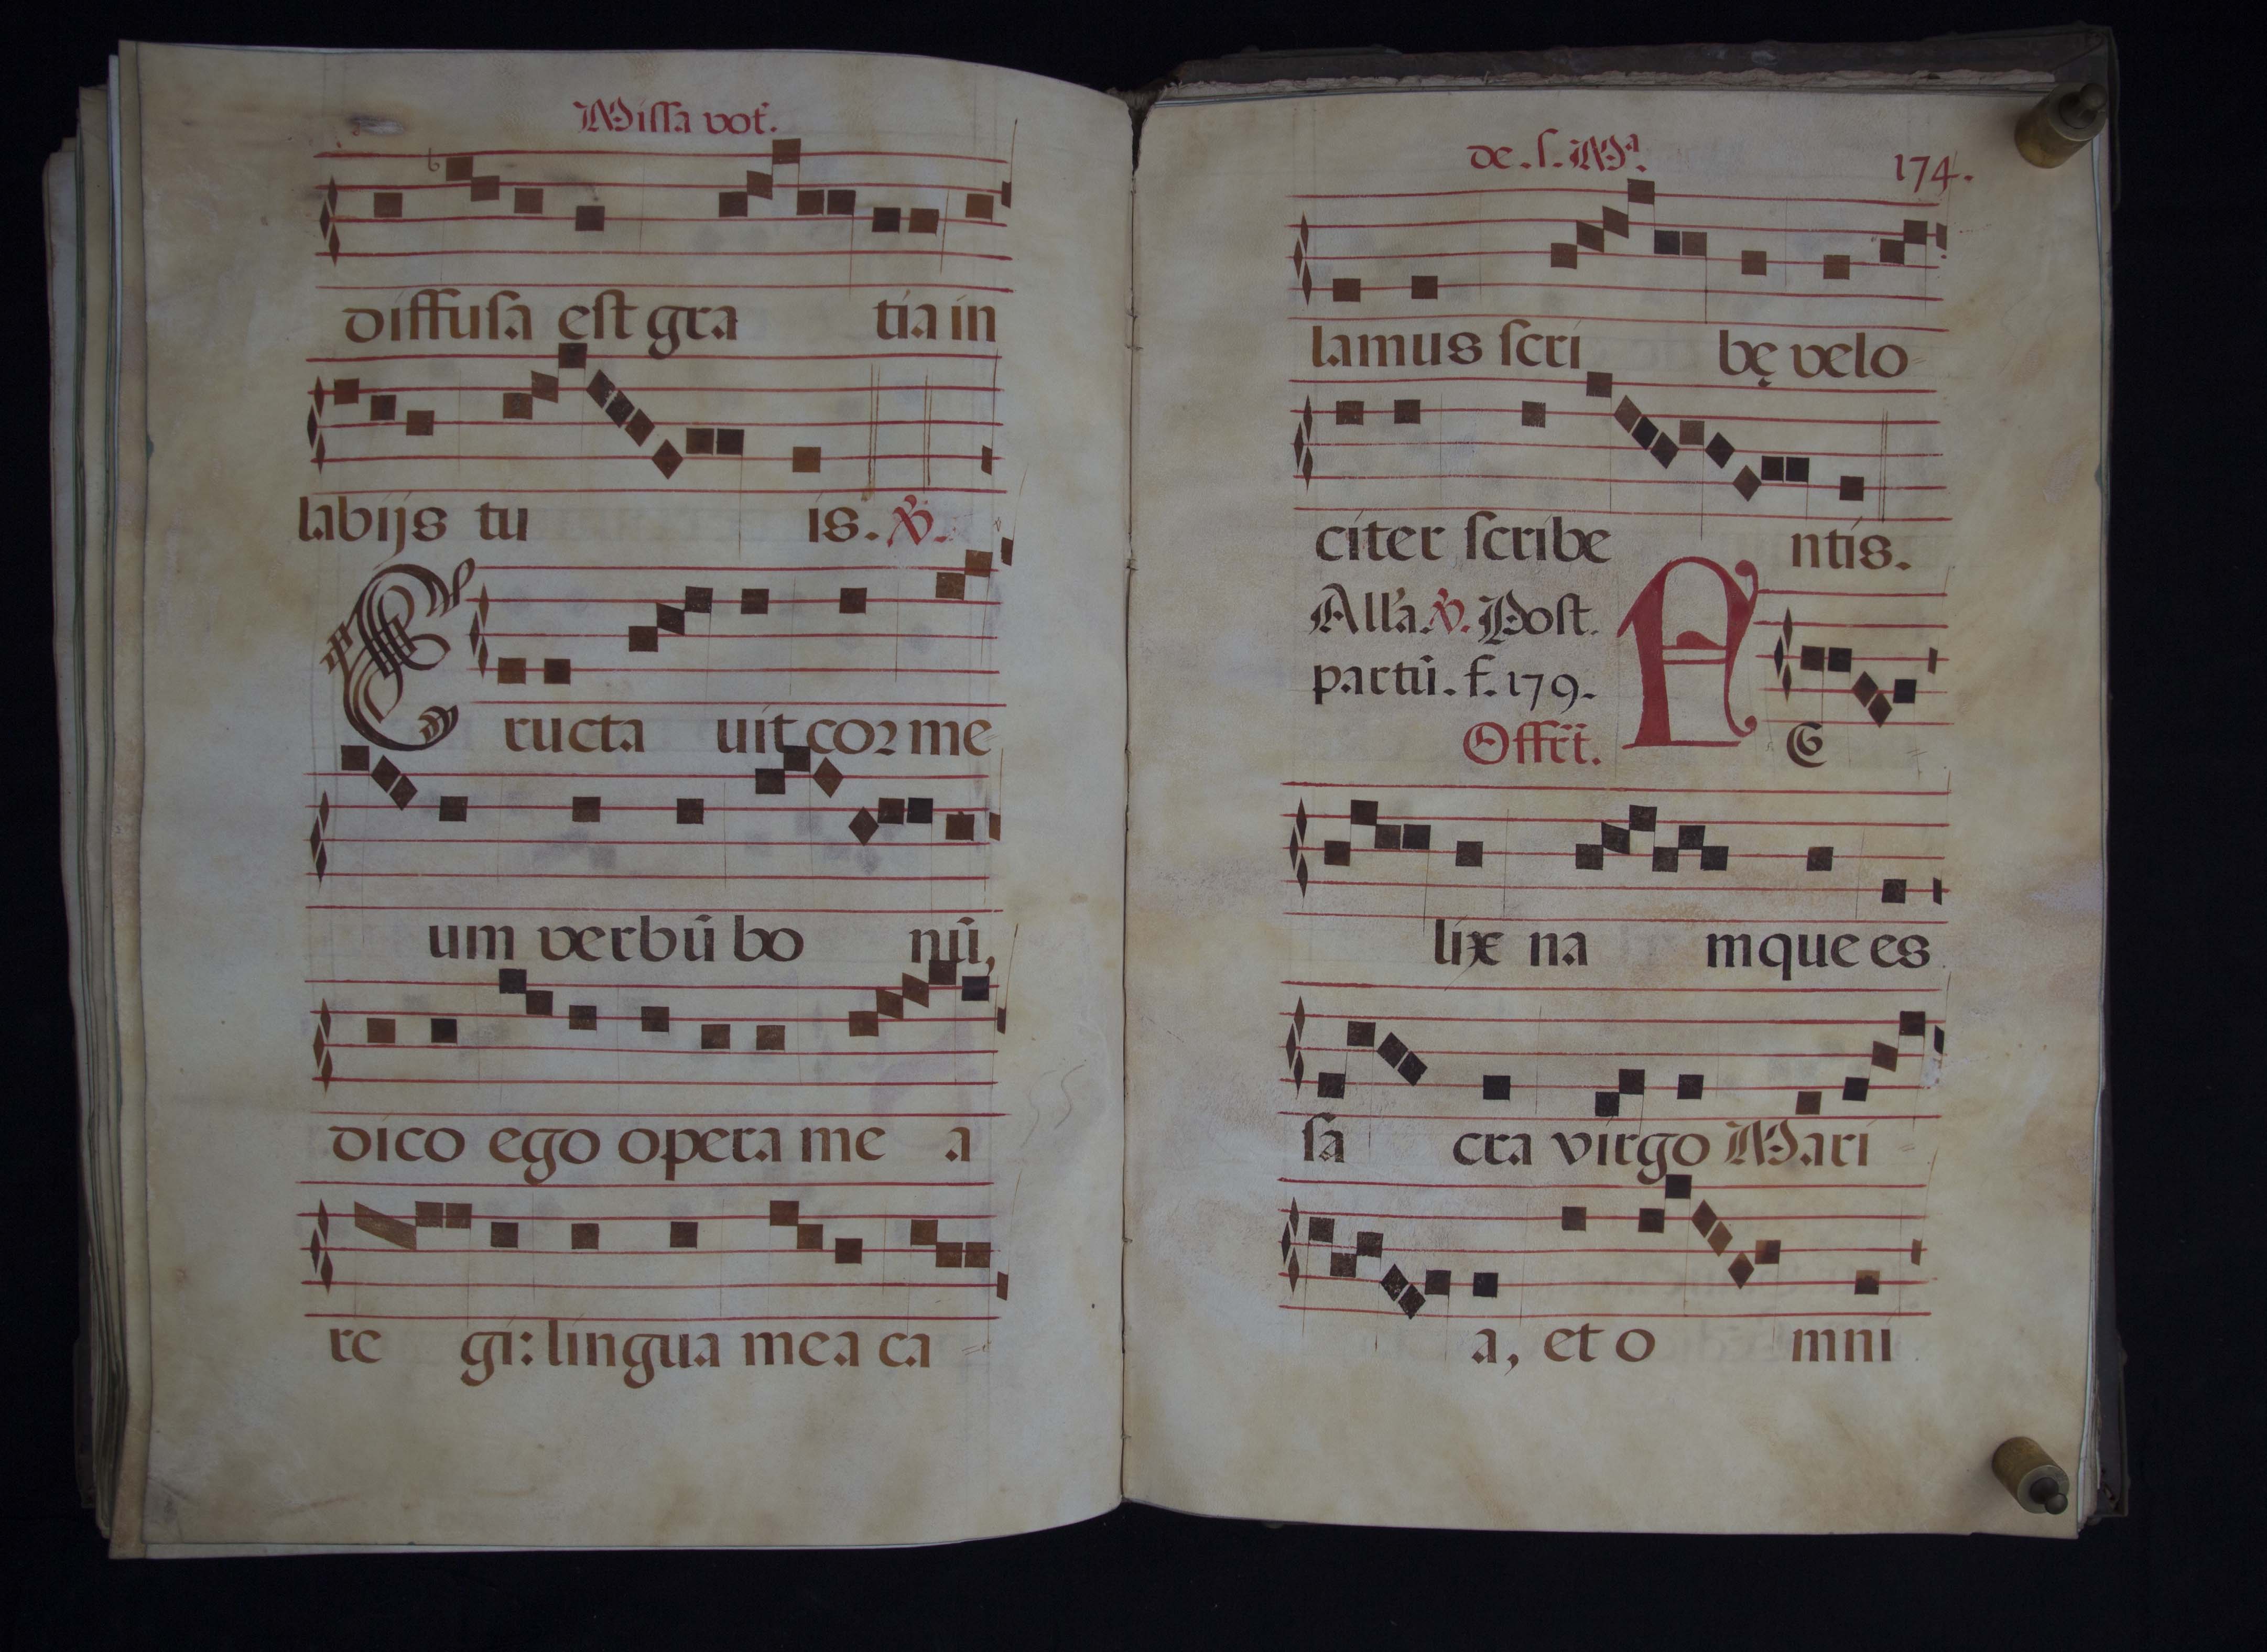 Missa vot.
diffusa est gra tia in
labijs tu is. ℣.
Eructa uit cor me
um verbū bo nū,
dico ego opera me a
re gi: lingua mea ca
de. s. Mᵃ.
174.
lamus scri bę velo
citer scribe ntis.
All'a. ℣. Post.
partū. f. 179.
Offrt.
FE
lix na mque es
sa cra virgo Mari
a, et o mni